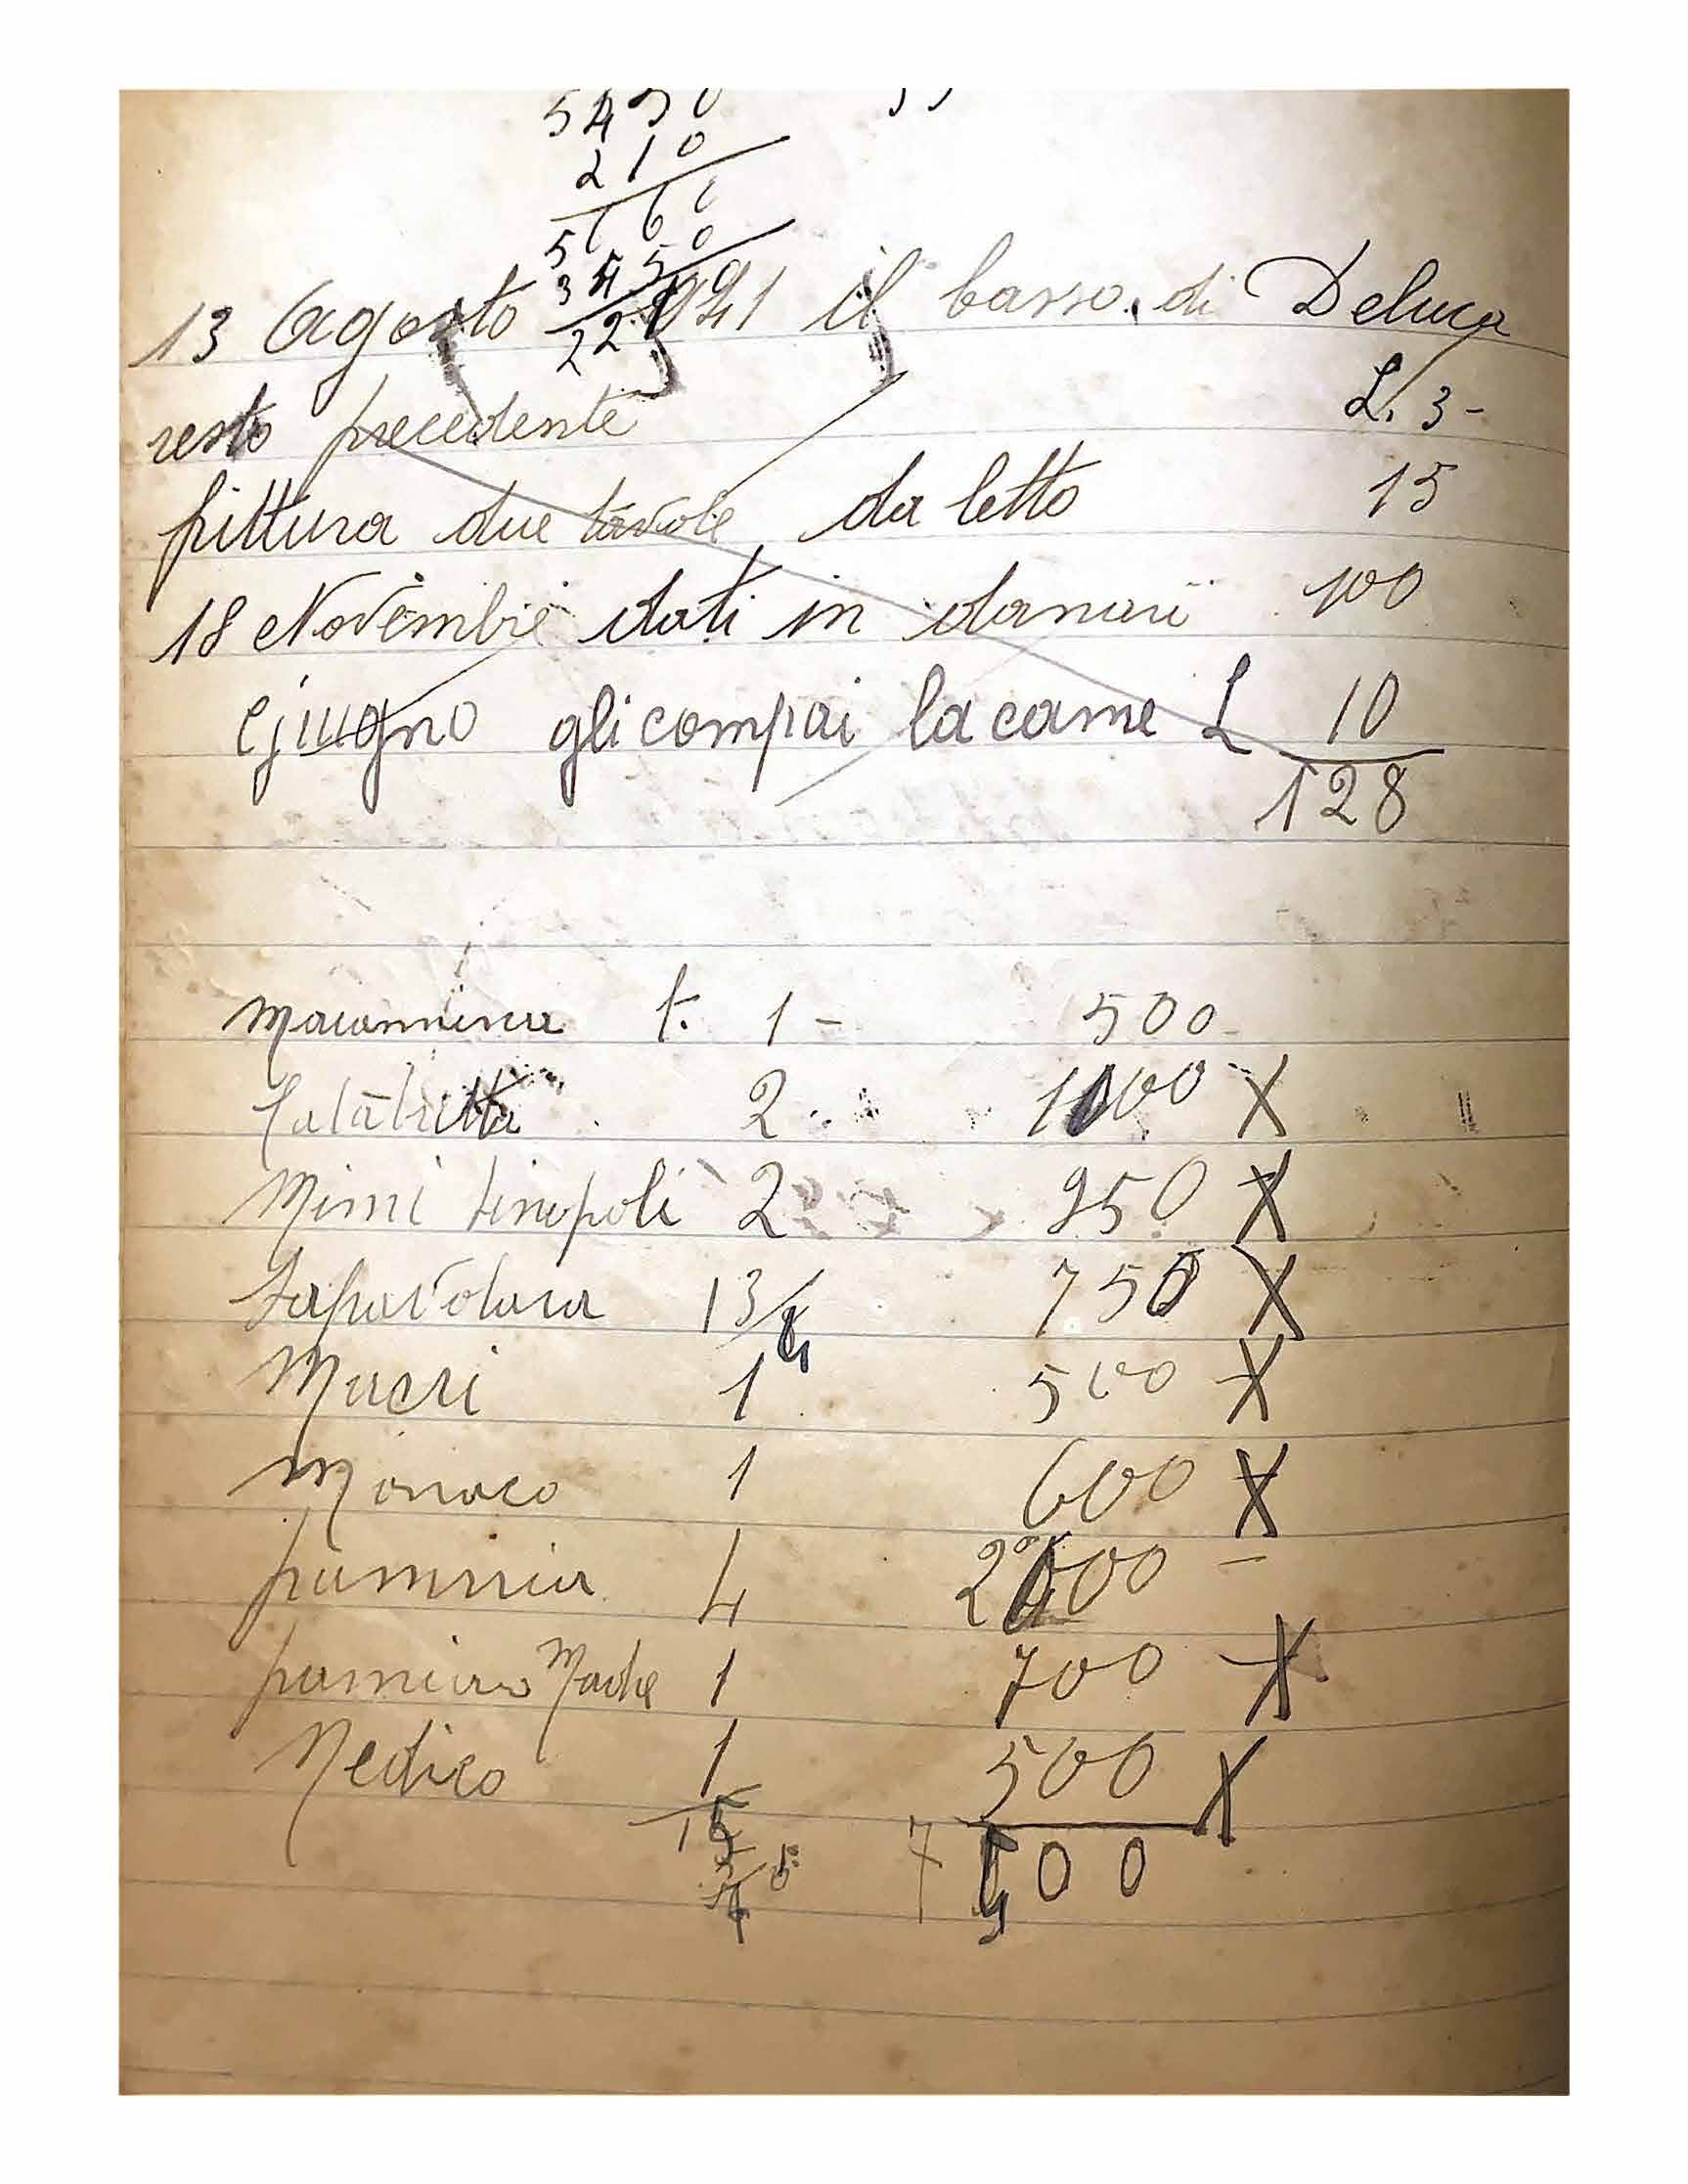 5450
210
5660
3450
221
13 Agosto 1941 il basso di Deluca
resto precedente L. 3-
pittura due tavole da letto 15
18 Novembre dati in danari 100
Gjiugno gli compai la carne L 10
128
t. 1 - 500
2 1000 X
Mimi tinopoli 2 950 X
13/4 750 X
Macri 1 500 X
Monaco 1 600 X
4 2000 -
Madre 1 700 X
Medico 1 500 X
15
7 500